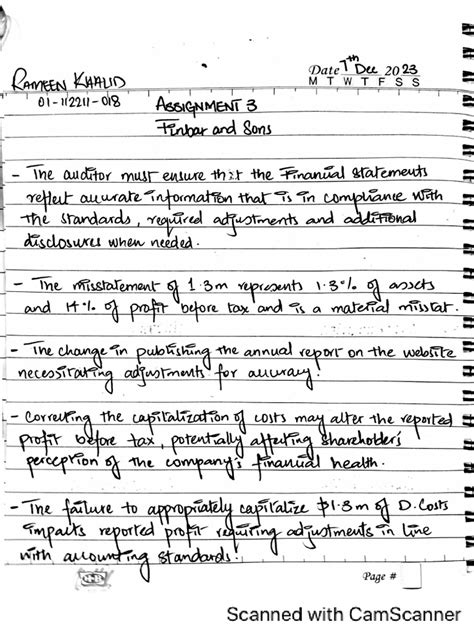 RAMEEN KHALID
Date 7th Dec 2023
M T W T F S S
01-112211-018
ASSIGNMENT 3
Finbar and Sons
- The auditor must ensure that the Financial statements
reflect accurate information that is in compliance with
the standards, required adjustments and additional
disclosures when needed.
- The misstatement of 1.3m represents 1.3% of assets
and 14% of profit before tax and is a material misstat.
- The change in publishing the annual report on the website
necessitating adjustments for accuracy!
- Correcting the capitalization of costs may alter the reported
profit before tax, potentially affecting shareholder's
perception of the company's financial health.
- The failure to appropriately capitalize $1.3m of D.Costs
impacts reported profit requiring adjustments in line
with accounting standards.
Page #
Scanned with CamScanner